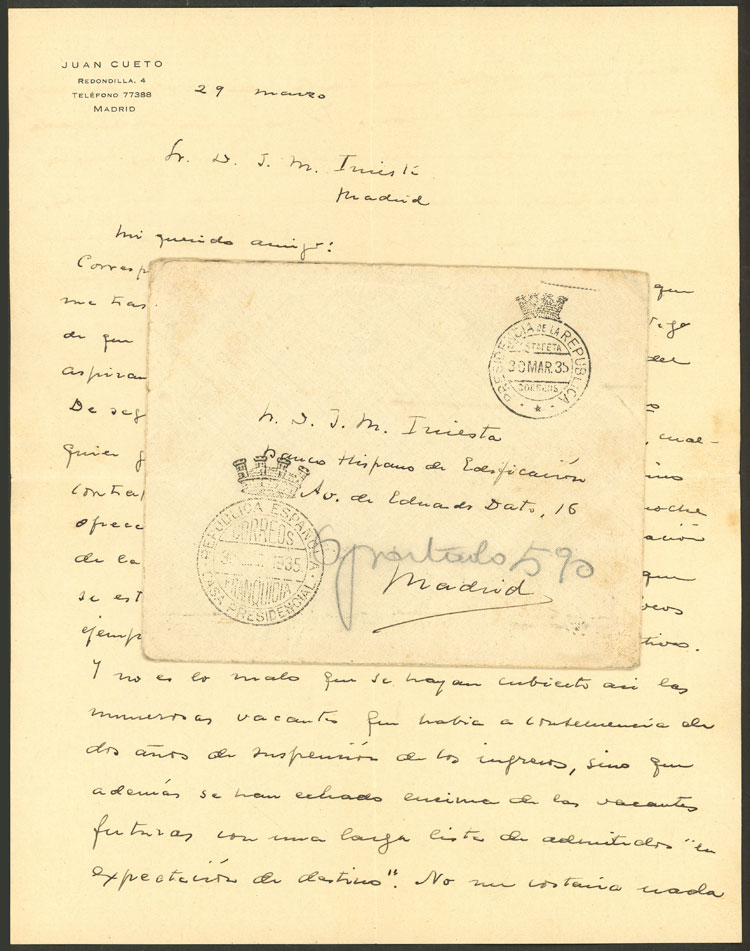 JUAN CUETO
REDONDILLA, 4
TELÉFONO 77388
MADRID
29 marzo
Sr. D. J. M. Iniesta
Madrid
Mi querido amigo:
Corresp
que
me tras
de que
del
aspiran
De seg
cual-
quier
contra
noche
ofrece
ación
de la
que
se est
ejemp
tivos.
Y no es lo malo que se hayan cubierto asi las
numerosas vacantes que habia a consecuencia de
dos años de suspensión de los ingresos, sino que
además se han echado encima de las vacantes
futuras con una larga lista de admitidos "en
expectación de destino". No me costaria nada
PRESIDENCIA DE LA REPUBLICA
ESTAFETA
30 MAR. 35
CORREOS
Sr. D. J. M. Iniesta
Banco Hispano de Edificación
Av. de Eduardo Dato, 16
Apartado 590
Madrid
REPUBLICA ESPAÑOLA
CORREOS
1935
FRANQUICIA
CASA PRESIDENCIAL